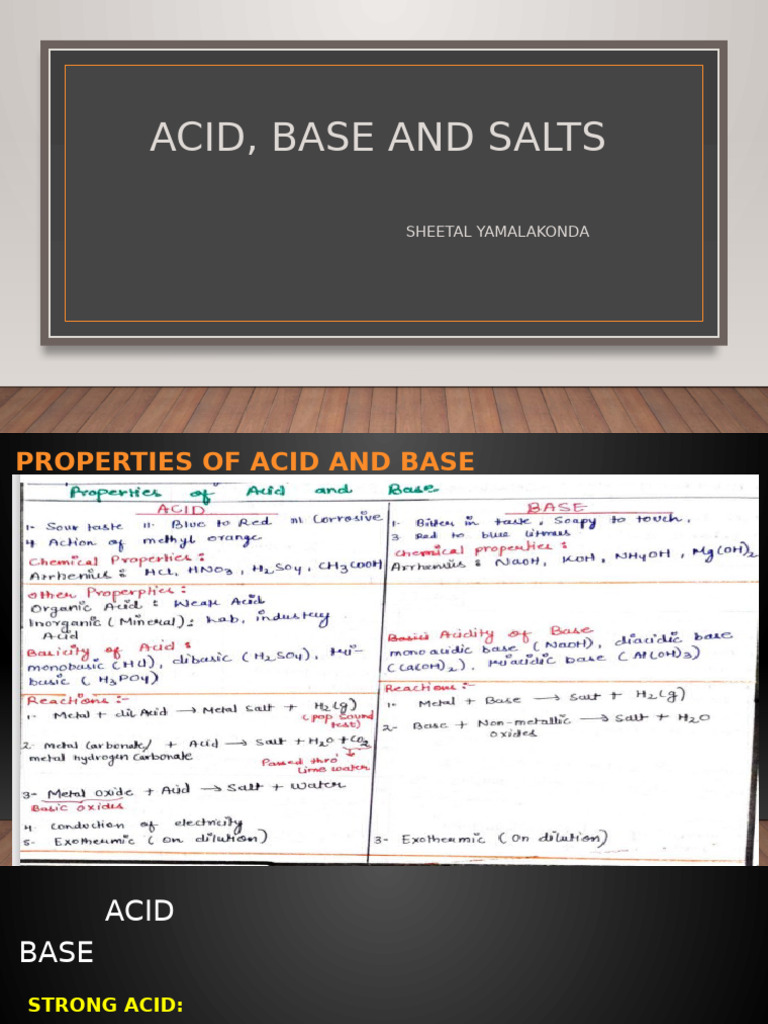 ACID, BASE AND SALTS
SHEETAL YAMALAKONDA
PROPERTIES OF ACID AND BASE
Properties of Acid and Base
ACID
1- Sour taste II- Blue to Red III Corrosive
4 Action of methyl orange
Chemical Properties:
Arrhenius: HCl, HNO3, H2SO4, CH3COOH
Other Properties:
Organic Acid: Weak Acid
Inorganic (Mineral): Lab, industry
Acid
Basicity of Acid:
monobasic (HCl), dibasic (H2SO4), tri-
basic (H3PO4)
Reactions:-
1- Metal + dil Acid → Metal Salt + H2(g)
(pop sound
test)
2- Metal Carbonate/ + Acid → Salt + H2O + CO2
metal hydrogen carbonate
Passed thro'
Lime water
3- Metal oxide + Acid → Salt + Water
Basic oxides
4 Conduction of electricity
5- Exothermic (On dilution)
BASE
1- Bitter in taste, Soapy to touch.
3 Red to blue litmus
Chemical properties:
Arrhenius: NaOH, KOH, NH4OH, Mg(OH)2
Acidity of Base
mono acidic base (NaOH), diacidic base
(Ca(OH)2), triacidic base (Al(OH)3)
Reactions:-
1- Metal + Base → Salt + H2(g)
2- Base + Non-metallic → Salt + H2O
oxides
3- Exothermic (On dilution)
ACID
BASE
STRONG ACID: